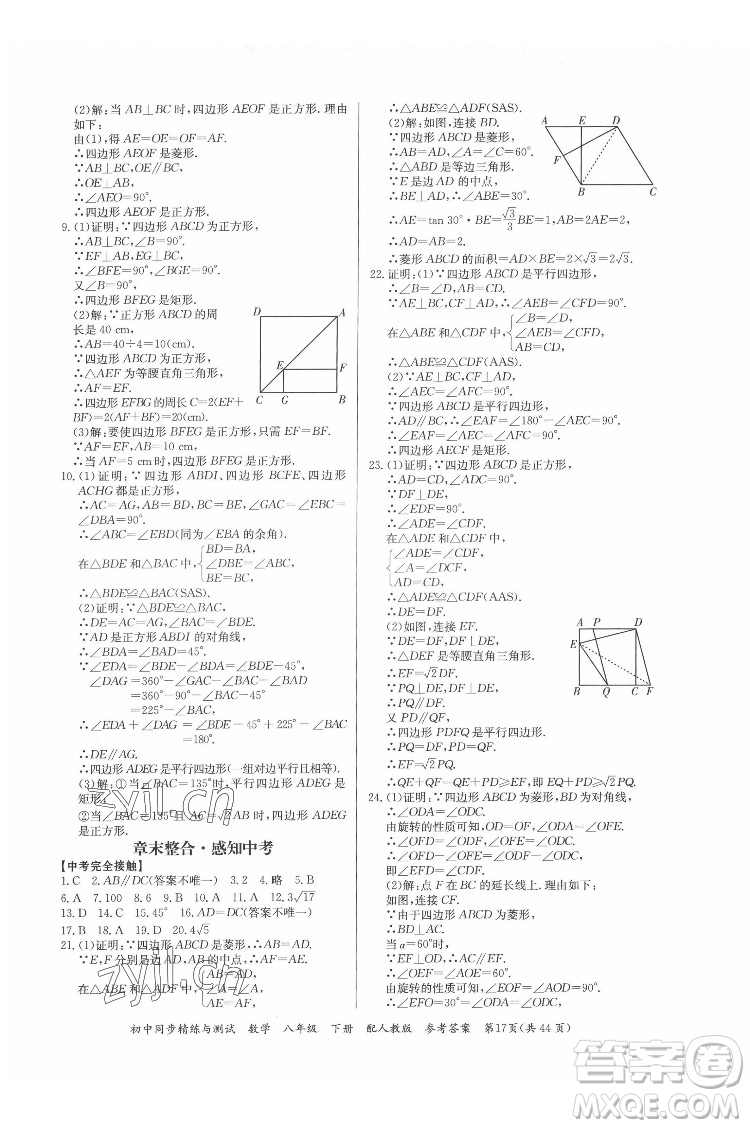 (2)解:当 AB⊥BC 时,四边形 AEOF 是正方形. 理由
如下:
由(1),得 AE=OE=OF=AF.
∴四边形 AEOF 是菱形.
∵AB⊥BC,OE∥BC,
∴OE⊥AB.
∴∠AEO=90°.
∴四边形 AEOF 是正方形.
9. (1)证明:∵四边形 ABCD 为正方形,
∴AB⊥BC,∠B=90°.
∵EF⊥AB,EG⊥BC,
∴∠BFE=90°,∠BGE=90°.
又∠B=90°,
∴四边形 BFEG 是矩形.
(2)解:∵正方形 ABCD 的周
长是 40 cm,
∴AB=40÷4=10(cm).
∵四边形 ABCD 为正方形,
∴△AEF 为等腰直角三角形.
∴AF=EF.
∴四边形 EFBG 的周长 C=2(EF+
BF)=2(AF+BF)=20(cm).
D A E F C G B
(3)解:要使四边形 BFEG 是正方形,只需 EF=BF.
∵AF=EF,AB=10 cm,
∴当 AF=5 cm时,四边形 BFEG 是正方形.
10. (1)证明:∵四边形 ABDI、四边形 BCFE、四边形
ACHG 都是正方形,
∴AC=AG,AB=BD,BC=BE,∠GAC=∠EBC=
∠DBA=90°.
∴∠ABC=∠EBD(同为∠EBA 的余角).
在△BDE 和△BAC 中,{BD=BA,
∠DBE=∠ABC,
BE=BC,
∴△BDE≌△BAC(SAS).
(2)证明:∵△BDE≌△BAC,
∴DE=AC=AG,∠BAC=∠BDE.
∵AD 是正方形 ABDI 的对角线,
∴∠BDA=∠BAD=45°.
∵∠EDA=∠BDE-∠BDA=∠BDE-45°,
∠DAG=360°-∠GAC-∠BAC-∠BAD
=360°-90°-∠BAC-45°
=225°-∠BAC,
∴∠EDA+∠DAG=∠BDE-45°+225°-∠BAC
=180°.
∴DE∥AG.
∴四边形 ADEG 是平行四边形(一组对边平行且相等).
(3)解:①当∠BAC=135°时,四边形 ADEG 是
矩形.
②当∠BAC=135°且 AC=√2AB 时,四边形 ADEG
是正方形.
章末整合·感知中考
【中考完全接触】
1.C 2.AB∥DC(答案不唯一) 3.2 4.略 5.B
6.A 7.100 8.6 9.A 10.A 11.A 12.3√17
13.D 14.C 15.45° 16.AD=DC(答案不唯一)
17.B 18.A 19.D 20.4√5
21. (1)证明:∵四边形 ABCD 是菱形,∴AB=AD.
∵E,F分别是边 AD,AB 的中点,∴AF=AE.
在△ABE 和△ADF 中,{AB=AD,
∠A=∠A,
AE=AF,
∴△ABE≌△ADF(SAS).
(2)解:如图,连接 BD.
∵四边形 ABCD 是菱形,
∴AB=AD.
∵∠A=∠C=60°,
∴△ABD 是等边三角形.
∵E 是边 AD 的中点,
∴BE⊥AD,∠ABE=30°.
∴AE=tan 30°·BE=√3/3 BE=1,
∴AD=AB=2.
∴菱形 ABCD 的面积=AD×BE=2×√3=2√3.
A E D F B C
22. 证明:(1)∵四边形 ABCD 是平行四边形,
∴∠B=∠D,AB=CD.
∵AE⊥BC,CF⊥AD,∴∠AEB=∠CFD=90°.
在△ABE 和△CDF 中,{∠B=∠D,
∠AEB=∠CFD,
AB=CD,
∴△ABE≌△CDF(AAS).
(2)∵AE⊥BC,CF⊥AD,
∴∠AEC=∠AFC=90°.
∵四边形 ABCD 是平行四边形,
∴AD∥BC,∴∠EAF=180°-∠AEC=90°.
∴∠EAF=∠AEC=∠AFC=90°.
∴四边形 AECF 是矩形.
23. (1)证明:∵四边形 ABCD 是正方形,
∴AD=CD,∠A=∠ADC=90°.
∵DF⊥DE,
∴∠EDF=90°.
∴∠ADE=∠CDF.
在△ADE 和△CDF 中,
{∠ADE=∠CDF,
∠A=∠DCF,
AD=CD,
∴△ADE≌△CDF(AAS).
∴DE=DF.
(2)如图,连接 EF.
∵DE=DF,DF⊥DE,
∴△DEF 是等腰直角三角形.
∴EF=√2DF.
∵PQ⊥DE,DF⊥DE,
∴PQ∥DF.
又 PD∥QF,
∴四边形 PDFQ 是平行四边形.
∴PQ=DF,QF=PD.
∴EF=√2PQ.
A P D E B Q C F
∴QE+QF=QE+PD≥EF,即 QE+PD≥√2PQ.
24. (1)证明:∵四边形 ABCD 为菱形,BD 为对角线,
∴∠ODC=∠ODA.
由旋转的性质可知,OF=OD,∠OFE=∠ODA.
∴∠OFD=∠ODF,∠ODF=∠OFE,
即∠EFD=∠FDC.
(2)解:点 F 在 BC 的延长线上. 理由如下:
如图,连接 OC.
∵由于四边形 ABCD 为菱形,
∴BD⊥AC.
当 α=60°时,
∴∠OEF=∠AOE=60°.
∴∠OAD=∠OEF=60°,∠OFE=∠ODA=30°.
由旋转的性质可知,
∴∠EFO=∠ODA=90°-∠OAD=30°.
初中同步精练与测试 数学 八年级 下册 配人教版 参考答案 第17页(共 44 页)
zyjl.cn
zyjl.cn
答案圈
MXQE.COM